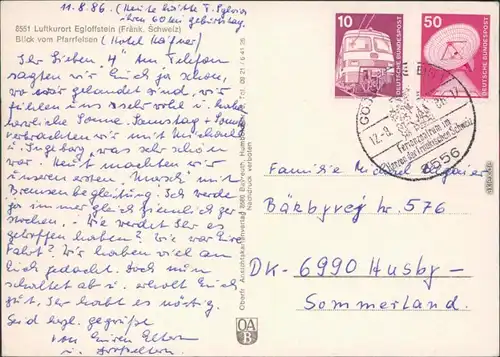 11.8.86. (Heute hätte T. Sylvia
ihren 60 ten Geburtstag.
8551 Luftkurort Egloffstein (Fränk. Schweiz)
Blick vom Pfarrfelsen (Hotel Häfner)
Ihr Lieben 4 Am Telefon
sagten wir Euch ja schon,
wo wir gelandet sind, wir
fühlen uns sehr wohl u. haben
herrliche Sonne. Samstag + Sonntag
verbrachten wir mit
u. Ingeborg was sehr schön
war. Heut machten wir
unseren ersten Marsch mit
Bremsenbegleitung. Ich werde
ja immer gleich ziemlich zer
stochen. Wie werdet Ihr es
getroffen haben? Wie war Eure
Fahrt? Wir haben viel an
Euch gedacht. Doch nun
schaltet ab u. erholt Euch
gut, Ihr habt es nötig.
Seid herzl. gegrüßt
von Euren Eltern
u. Großeltern.
Oberfr. Ansichtskartenverlag 8580 Bayreuth
Nachdruck verboten
OA
B
10
DEUTSCHE BUNDESPOST
50
DEUTSCHE BUNDESPOST
Ferienzentrum im
Herzen der Fränkischen Schweiz
8556
Familie
Bärbyvej nr. 576
DK-6990 Husby-
Sommerland.